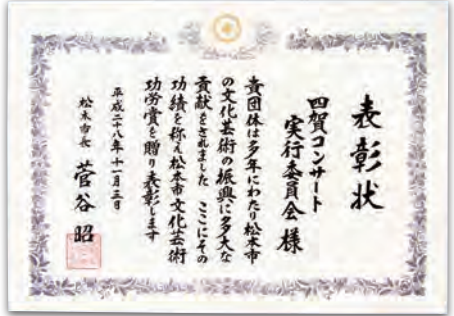 表彰状
四賀コンサート
実行委員会 様
貴団体は多年にわたり松本市
の文化芸術の振興に多大な
貢献をされました ここにその
功績を称え松本市文化芸術
功労賞を贈り表彰します
平成二十八年十一月三日
松本市長 菅谷 昭